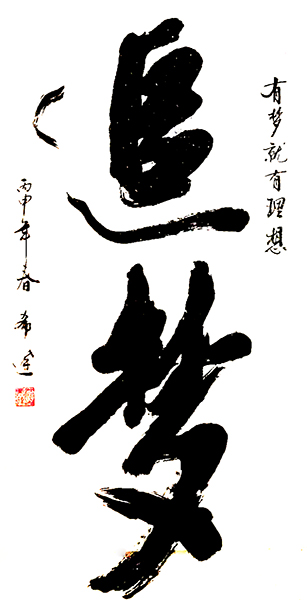 有梦就有理想
追梦
丙申年春 希